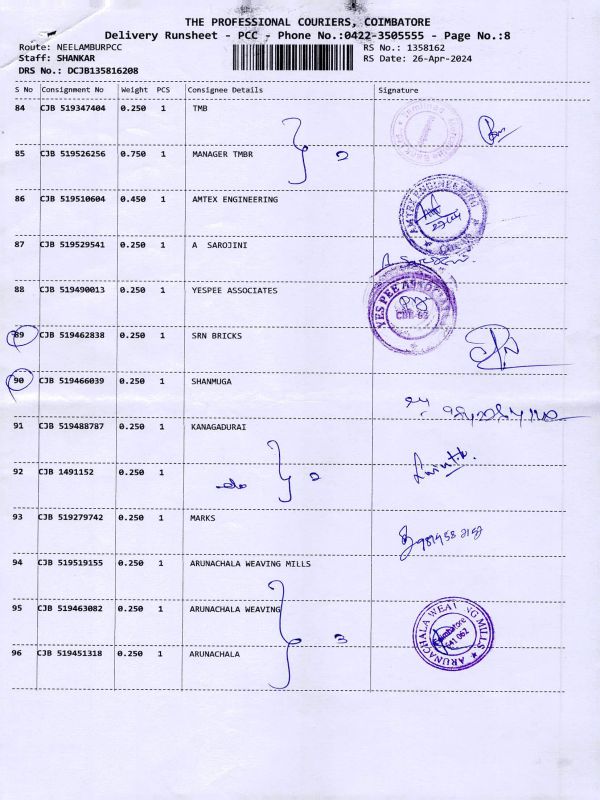 THE PROFESSIONAL COURIERS, COIMBATORE
Delivery Runsheet - PCC - Phone No.:0422-3505555 - Page No.:8
Route: NEELAMBURPCC RS No.: 1358162
Staff: SHANKAR RS Date: 26-Apr-2024
DRS No.: DCJB135816208
S No Consignment No Weight PCS Consignee Details Signature
84 CJB 519347404 0.250 1 TMB
85 CJB 519526256 0.750 1 MANAGER TMBR 2
86 CJB 519510604 0.450 1 AMTEX ENGINEERING
AMTEX ENGINEERING
87 CJB 519529541 0.250 1 A SAROJINI
A Sarojini
88 CJB 519490013 0.250 1 YESPEE ASSOCIATES
YES PEE ASSOCIATES
CBE-62
89 CJB 519462838 0.250 1 SRN BRICKS
90 CJB 519466039 0.250 1 SHANMUGA
91 CJB 519488787 0.250 1 KANAGADURAI
92 CJB 1491152 0.250 1 -do- 2
93 CJB 519279742 0.250 1 MARKS
94 CJB 519519155 0.250 1 ARUNACHALA WEAVING MILLS
95 CJB 519463082 0.250 1 ARUNACHALA WEAVING 3
ARUNACHALA WEAVING MILLS
Coimbatore
641 062
96 CJB 519451318 0.250 1 ARUNACHALA